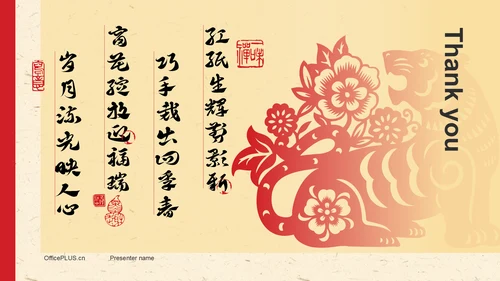 Thank you
红纸生辉剪影新
巧手裁出四季春
窗花绽放迎福瑞
岁月流光映人心
OfficePLUS.cn
.Presenter name